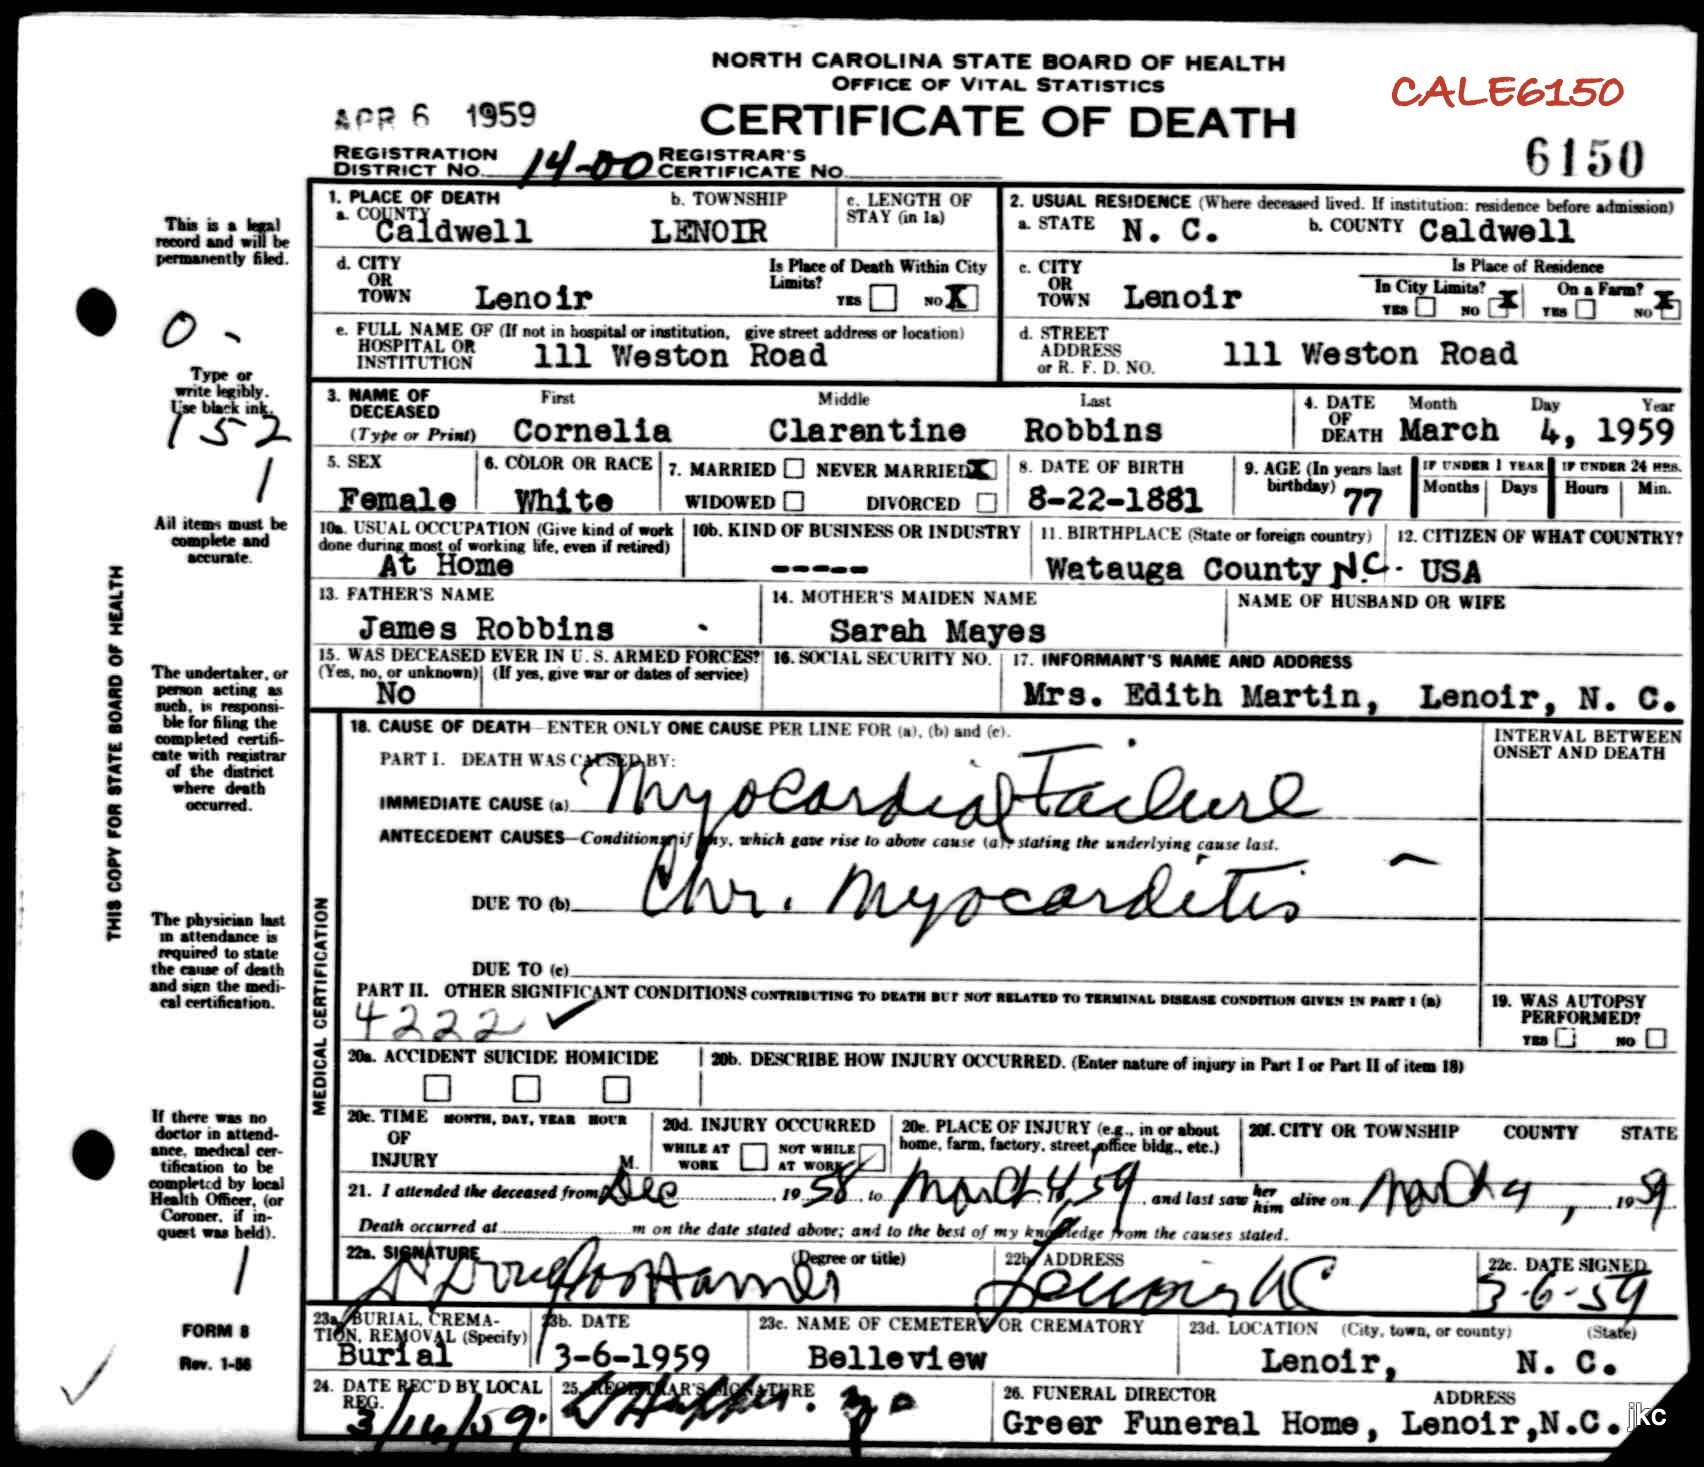 NORTH CAROLINA STATE BOARD OF HEALTH
OFFICE OF VITAL STATISTICS
CALE6150
APR 6 1959
CERTIFICATE OF DEATH
REGISTRATION DISTRICT NO. 14-00 REGISTRAR'S CERTIFICATE NO.
6150
1. PLACE OF DEATH
a. COUNTY Caldwell
b. TOWNSHIP LENOIR
c. LENGTH OF STAY (in 1a)
2. USUAL RESIDENCE (Where deceased lived. If institution: residence before admission)
a. STATE N. C. b. COUNTY Caldwell
d. CITY OR TOWN Lenoir
Is Place of Death Within City Limits? YES NO X
c. CITY OR TOWN Lenoir
Is Place of Residence
In City Limits? YES NO X On a Farm? YES NO X
e. FULL NAME OF (If not in hospital or institution, give street address or location)
HOSPITAL OR INSTITUTION 111 Weston Road
d. STREET ADDRESS or R. F. D. NO. 111 Weston Road
3. NAME OF DECEASED (Type or Print)
First Middle Last
Cornelia Clarantine Robbins
4. DATE OF DEATH Month Day Year
March 4, 1959
5. SEX Female
6. COLOR OR RACE White
7. MARRIED NEVER MARRIED X
WIDOWED DIVORCED
8. DATE OF BIRTH 8-22-1881
9. AGE (In years last birthday) 77
IF UNDER 1 YEAR Months Days
IF UNDER 24 HRS. Hours Min.
10a. USUAL OCCUPATION (Give kind of work done during most of working life, even if retired)
At Home
10b. KIND OF BUSINESS OR INDUSTRY
-----
11. BIRTHPLACE (State or foreign country)
Watauga County N.C.
12. CITIZEN OF WHAT COUNTRY?
USA
13. FATHER'S NAME
James Robbins
14. MOTHER'S MAIDEN NAME
Sarah Mayes
NAME OF HUSBAND OR WIFE
15. WAS DECEASED EVER IN U. S. ARMED FORCES?
(Yes, no, or unknown) (If yes, give war or dates of service)
No
16. SOCIAL SECURITY NO.
17. INFORMANT'S NAME AND ADDRESS
Mrs. Edith Martin, Lenoir, N. C.
18. CAUSE OF DEATH—ENTER ONLY ONE CAUSE PER LINE FOR (a), (b) and (c).
INTERVAL BETWEEN ONSET AND DEATH
PART I. DEATH WAS CAUSED BY:
IMMEDIATE CAUSE (a) Myocardial Failure
ANTECEDENT CAUSES—Conditions, if any, which gave rise to above cause (a), stating the underlying cause last.
DUE TO (b) Chr. Myocarditis
DUE TO (c)
PART II. OTHER SIGNIFICANT CONDITIONS CONTRIBUTING TO DEATH BUT NOT RELATED TO TERMINAL DISEASE CONDITION GIVEN IN PART I (a)
4222 ✓
19. WAS AUTOPSY PERFORMED?
YES NO
20a. ACCIDENT SUICIDE HOMICIDE
20b. DESCRIBE HOW INJURY OCCURRED. (Enter nature of injury in Part I or Part II of item 18)
20c. TIME OF INJURY MONTH, DAY, YEAR HOUR M.
20d. INJURY OCCURRED
WHILE AT WORK NOT WHILE AT WORK
20e. PLACE OF INJURY (e.g., in or about home, farm, factory, street, office bldg., etc.)
20f. CITY OR TOWNSHIP COUNTY STATE
21. I attended the deceased from Dec 19 58 to March 4, 59 and last saw her him alive on March 4, 19 59
Death occurred at m on the date stated above; and to the best of my knowledge from the causes stated.
22a. SIGNATURE (Degree or title)
Douglas Hamer
22b. ADDRESS
Lenoir NC
22c. DATE SIGNED
3-6-59
23a. BURIAL, CREMATION, REMOVAL (Specify)
Burial
23b. DATE
3-6-1959
23c. NAME OF CEMETERY OR CREMATORY
Belleview
23d. LOCATION (City, town, or county) (State)
Lenoir, N. C.
24. DATE REC'D BY LOCAL REG.
3/16/59.
25. REGISTRAR'S SIGNATURE
26. FUNERAL DIRECTOR ADDRESS
Greer Funeral Home, Lenoir,N.C.
jkc
This is a legal record and will be permanently filed.
0 -
Type or write legibly. Use black ink.
152
1
All items must be complete and accurate.
THIS COPY FOR STATE BOARD OF HEALTH
The undertaker, or person acting as such, is responsible for filing the completed certificate with registrar of the district where death occurred.
The physician last in attendance is required to state the cause of death and sign the medical certification.
MEDICAL CERTIFICATION
If there was no doctor in attendance, medical certification to be completed by local Health Officer, (or Coroner, if inquest was held).
1
FORM 8
Rev. 1-56
✓